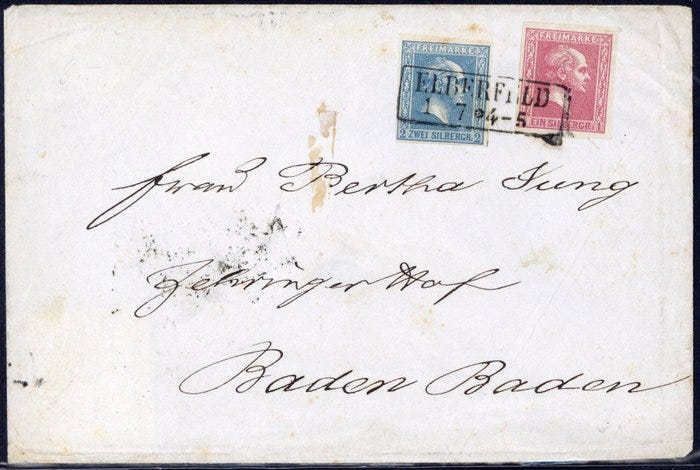 FREIMARKE
2 ZWEI SILBERGR. 2
FREIMARKE
EIN SILBERGR. 1
ELBERFELD
1 7 *4-5
Frau Bertha Jung
Zehringer Hof
Baden Baden